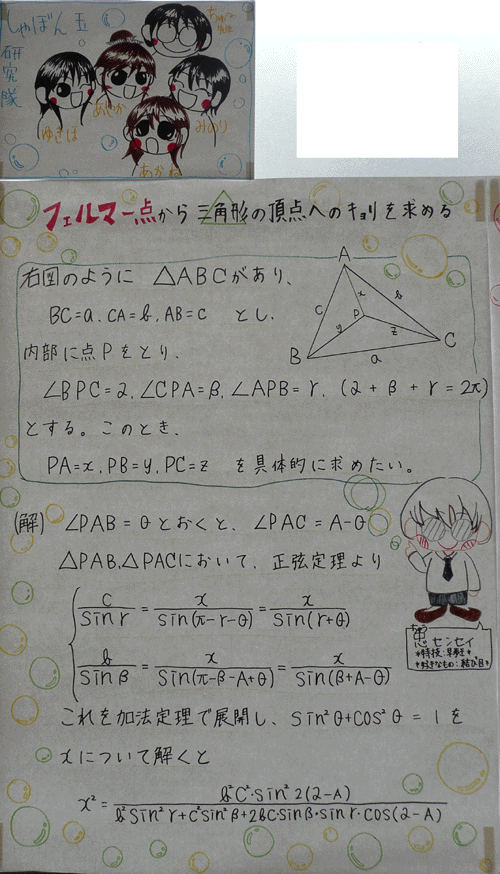 しゃぼん玉
研究隊
ゆきほ
あやか
みのり
あかね
フェルマー点から三角形の頂点へのキョリを求める
右図のように △ABCがあり、
BC=a, CA=b, AB=c とし、
内部に点Pをとり、
∠BPC=α, ∠CPA=β, ∠APB=γ, (α+β+γ=2π)
とする。このとき、
PA=x, PB=y, PC=z を具体的に求めたい。
A
B
C
P
c
b
a
x
y
z
(解) ∠PAB=θとおくと、∠PAC=A-θ
△PAB,△PACにおいて、正弦定理より
c/sinγ = x/sin(π-γ-θ) = x/sin(γ+θ)
b/sinβ = x/sin(π-β-A+θ) = x/sin(β+A-θ)
センセイ
*好きなもの:結び目*
これを加法定理で展開し、sin²θ+cos²θ=1を
xについて解くと
x² = b²c²・sin²(α-A)/b²sin²γ+c²sin²β+2bc・sinβ・sinγ・cos(α-A)